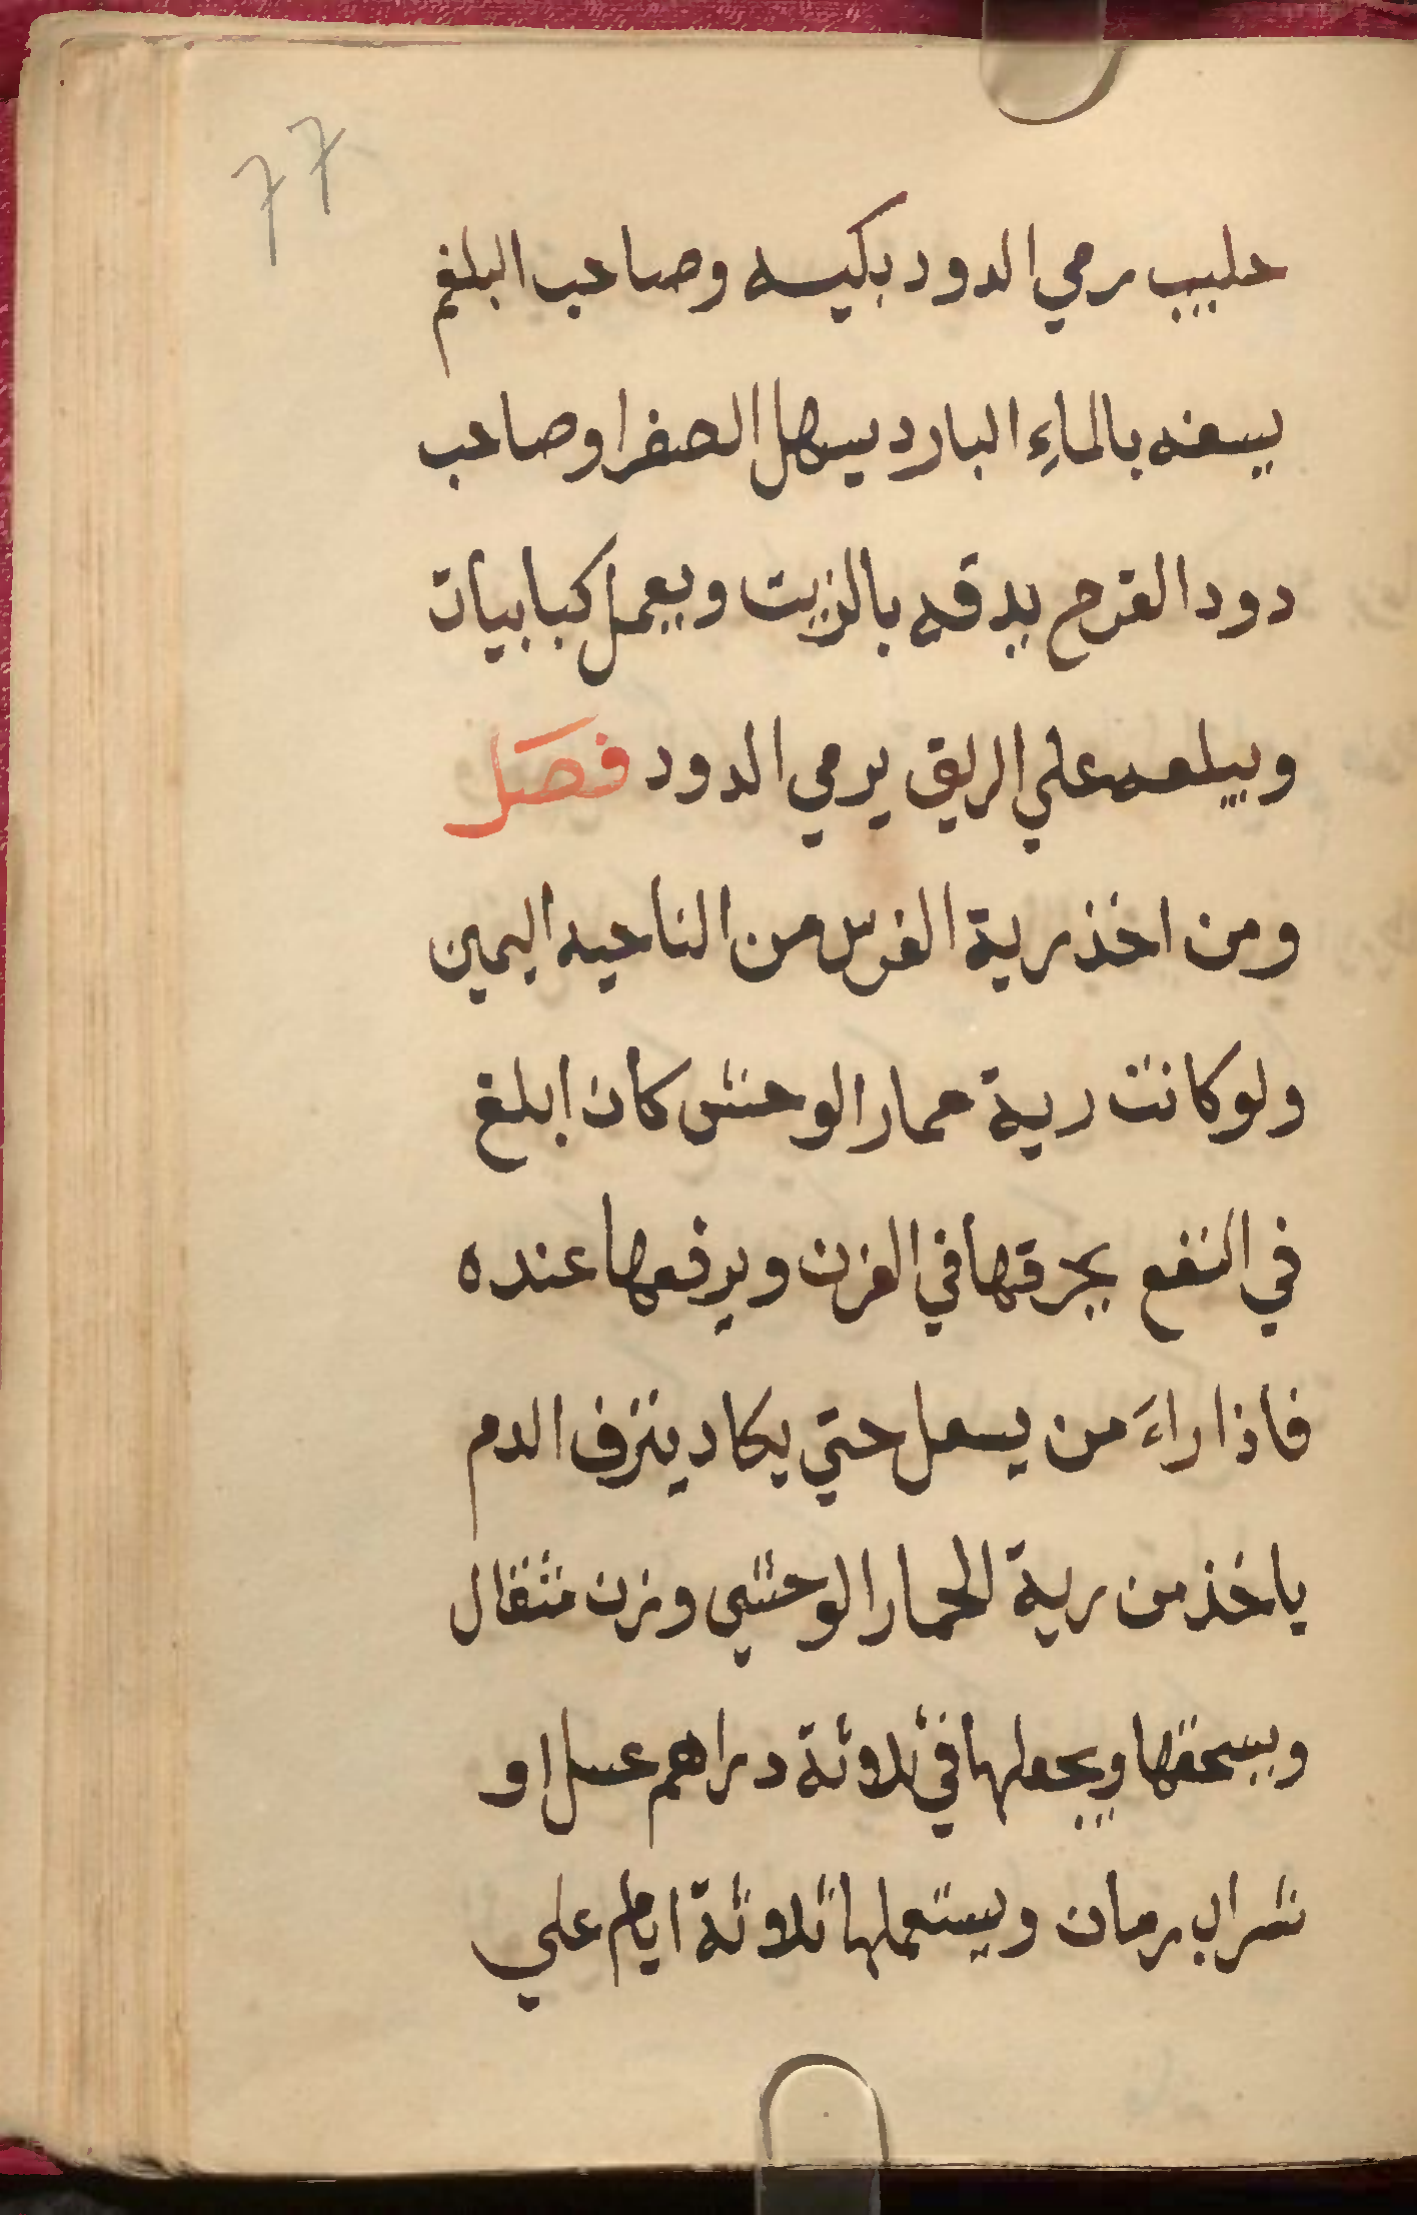 77
حليب رمي الدود بكيسه وصاحب البلغم
يسفه بالماءِ البارد يسهل الصفرا وصاحب
دود القرح يدقه بالزيت ويعمل كبابيات
ويبلعه علي الريق يرمي الدود فصَل
ومن اخذ رية الفرس من الناحيه اليمين
ولو كانت رية حمار الوحش كان ابلغ
في النفع يحرقها في الفرن ويرفعها عنده
فاذا راءَ من يسعل حتي يكاد ينزف الدم
ياخذ من رية الحمار الوحشي وزن مثقال
ويسحقها ويجعلها في ثلاوثة دراهم عسل او
شراب رمان ويستعملها ثلاوثة ايام علي